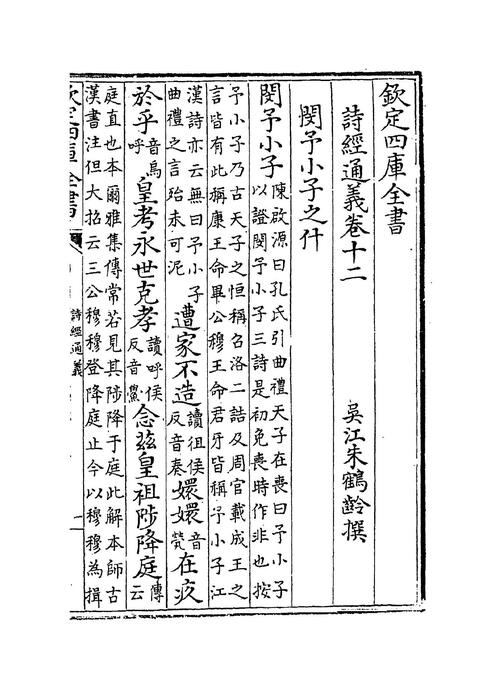 欽定四庫全書
詩經通義卷十二
吳江朱鶴齡撰
閔予小子之什
閔予小子陳啟源曰孔氏引曲禮天子在喪曰予小子
以證閔予小子三詩是初免喪時作非也按
予小子乃古天子之恒稱召洛二誥及周官載成王之
言皆有此稱康王命畢公穆王命君牙皆稱予小子江
漢詩亦云無曰予小子
曲禮之言殆未可泥遭家不造讀徂侯
反音奏嬛嬛音
煢在疚
於乎音烏
呼皇考永世克孝讀呼侯
反音鱟念茲皇祖陟降庭傳
云
庭直也本爾雅集傳常若見其陟降于庭此解本師古
漢書注但大招云三公穆穆登降庭止今以穆穆為揖
欽定四庫全書
詩經通義
一